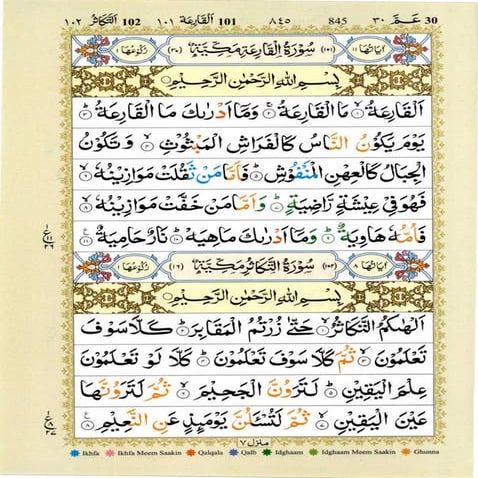 ١٠٢ التكاثر 102 ١٠١ القارعة 101 ٨٤٥ 845 ٣٠ عم 30
اٰيَاتُهَا ١١ (١٠١) سُوْرَةُ الْقَارِعَةِ مَكِّيَّةٌ (٣٠) رُكُوْعُهَا ١
بِسْمِ اللّٰهِ الرَّحْمٰنِ الرَّحِيْمِ
اَلْقَارِعَةُ ۙ‏ ١ مَا الْقَارِعَةُ ۚ‏ ٢ وَمَاۤ اَدْرٰىكَ مَا الْقَارِعَةُ ؕ‏ ٣
يَوْمَ يَكُوْنُ النَّاسُ كَالْفَرَاشِ الْمَبْثُوْثِ ۙ‏ ٤ وَتَكُوْنُ
الْجِبَالُ كَالْعِهْنِ الْمَنْفُوْشِ ؕ‏ ٥ فَاَمَّا مَنْ ثَقُلَتْ مَوَازِيْنُهٗ ۙ‏ ٦
فَهُوَ فِىْ عِيْشَةٍ رَّاضِيَةٍ ؕ‏ ٧ وَاَمَّا مَنْ خَفَّتْ مَوَازِيْنُهٗ ۙ‏ ٨
فَاُمُّهٗ هَاوِيَةٌ ؕ‏ ٩ وَمَاۤ اَدْرٰىكَ مَا هِيَهْ ؕ‏ ١٠ نَارٌ حَامِيَةٌ ‏ ١١
اٰيَاتُهَا ٨ (١٠٢) سُوْرَةُ التَّكَاثُرِ مَكِّيَّةٌ (١٦) رُكُوْعُهَا ١
بِسْمِ اللّٰهِ الرَّحْمٰنِ الرَّحِيْمِ
اَلْهٰىكُمُ التَّكَاثُرُ ۙ‏ ١ حَتّٰى زُرْتُمُ الْمَقَابِرَ ؕ‏ ٢ كَلَّا سَوْفَ
تَعْلَمُوْنَ ۙ‏ ٣ ثُمَّ كَلَّا سَوْفَ تَعْلَمُوْنَ ؕ‏ ٤ كَلَّا لَوْ تَعْلَمُوْنَ
عِلْمَ الْيَقِيْنِ ؕ‏ ٥ لَتَرَوُنَّ الْجَحِيْمَ ۙ‏ ٦ ثُمَّ لَتَرَوُنَّهَا
عَيْنَ الْيَقِيْنِ ۙ‏ ٧ ثُمَّ لَتُسْئَلُنَّ يَوْمَئِذٍ عَنِ النَّعِيْمِ ‏ ٨
منزل ٧
Ikhfa Ikhfa Meem Saakin Qalqala Qalb Idghaam Idghaam Meem Saakin Ghunna